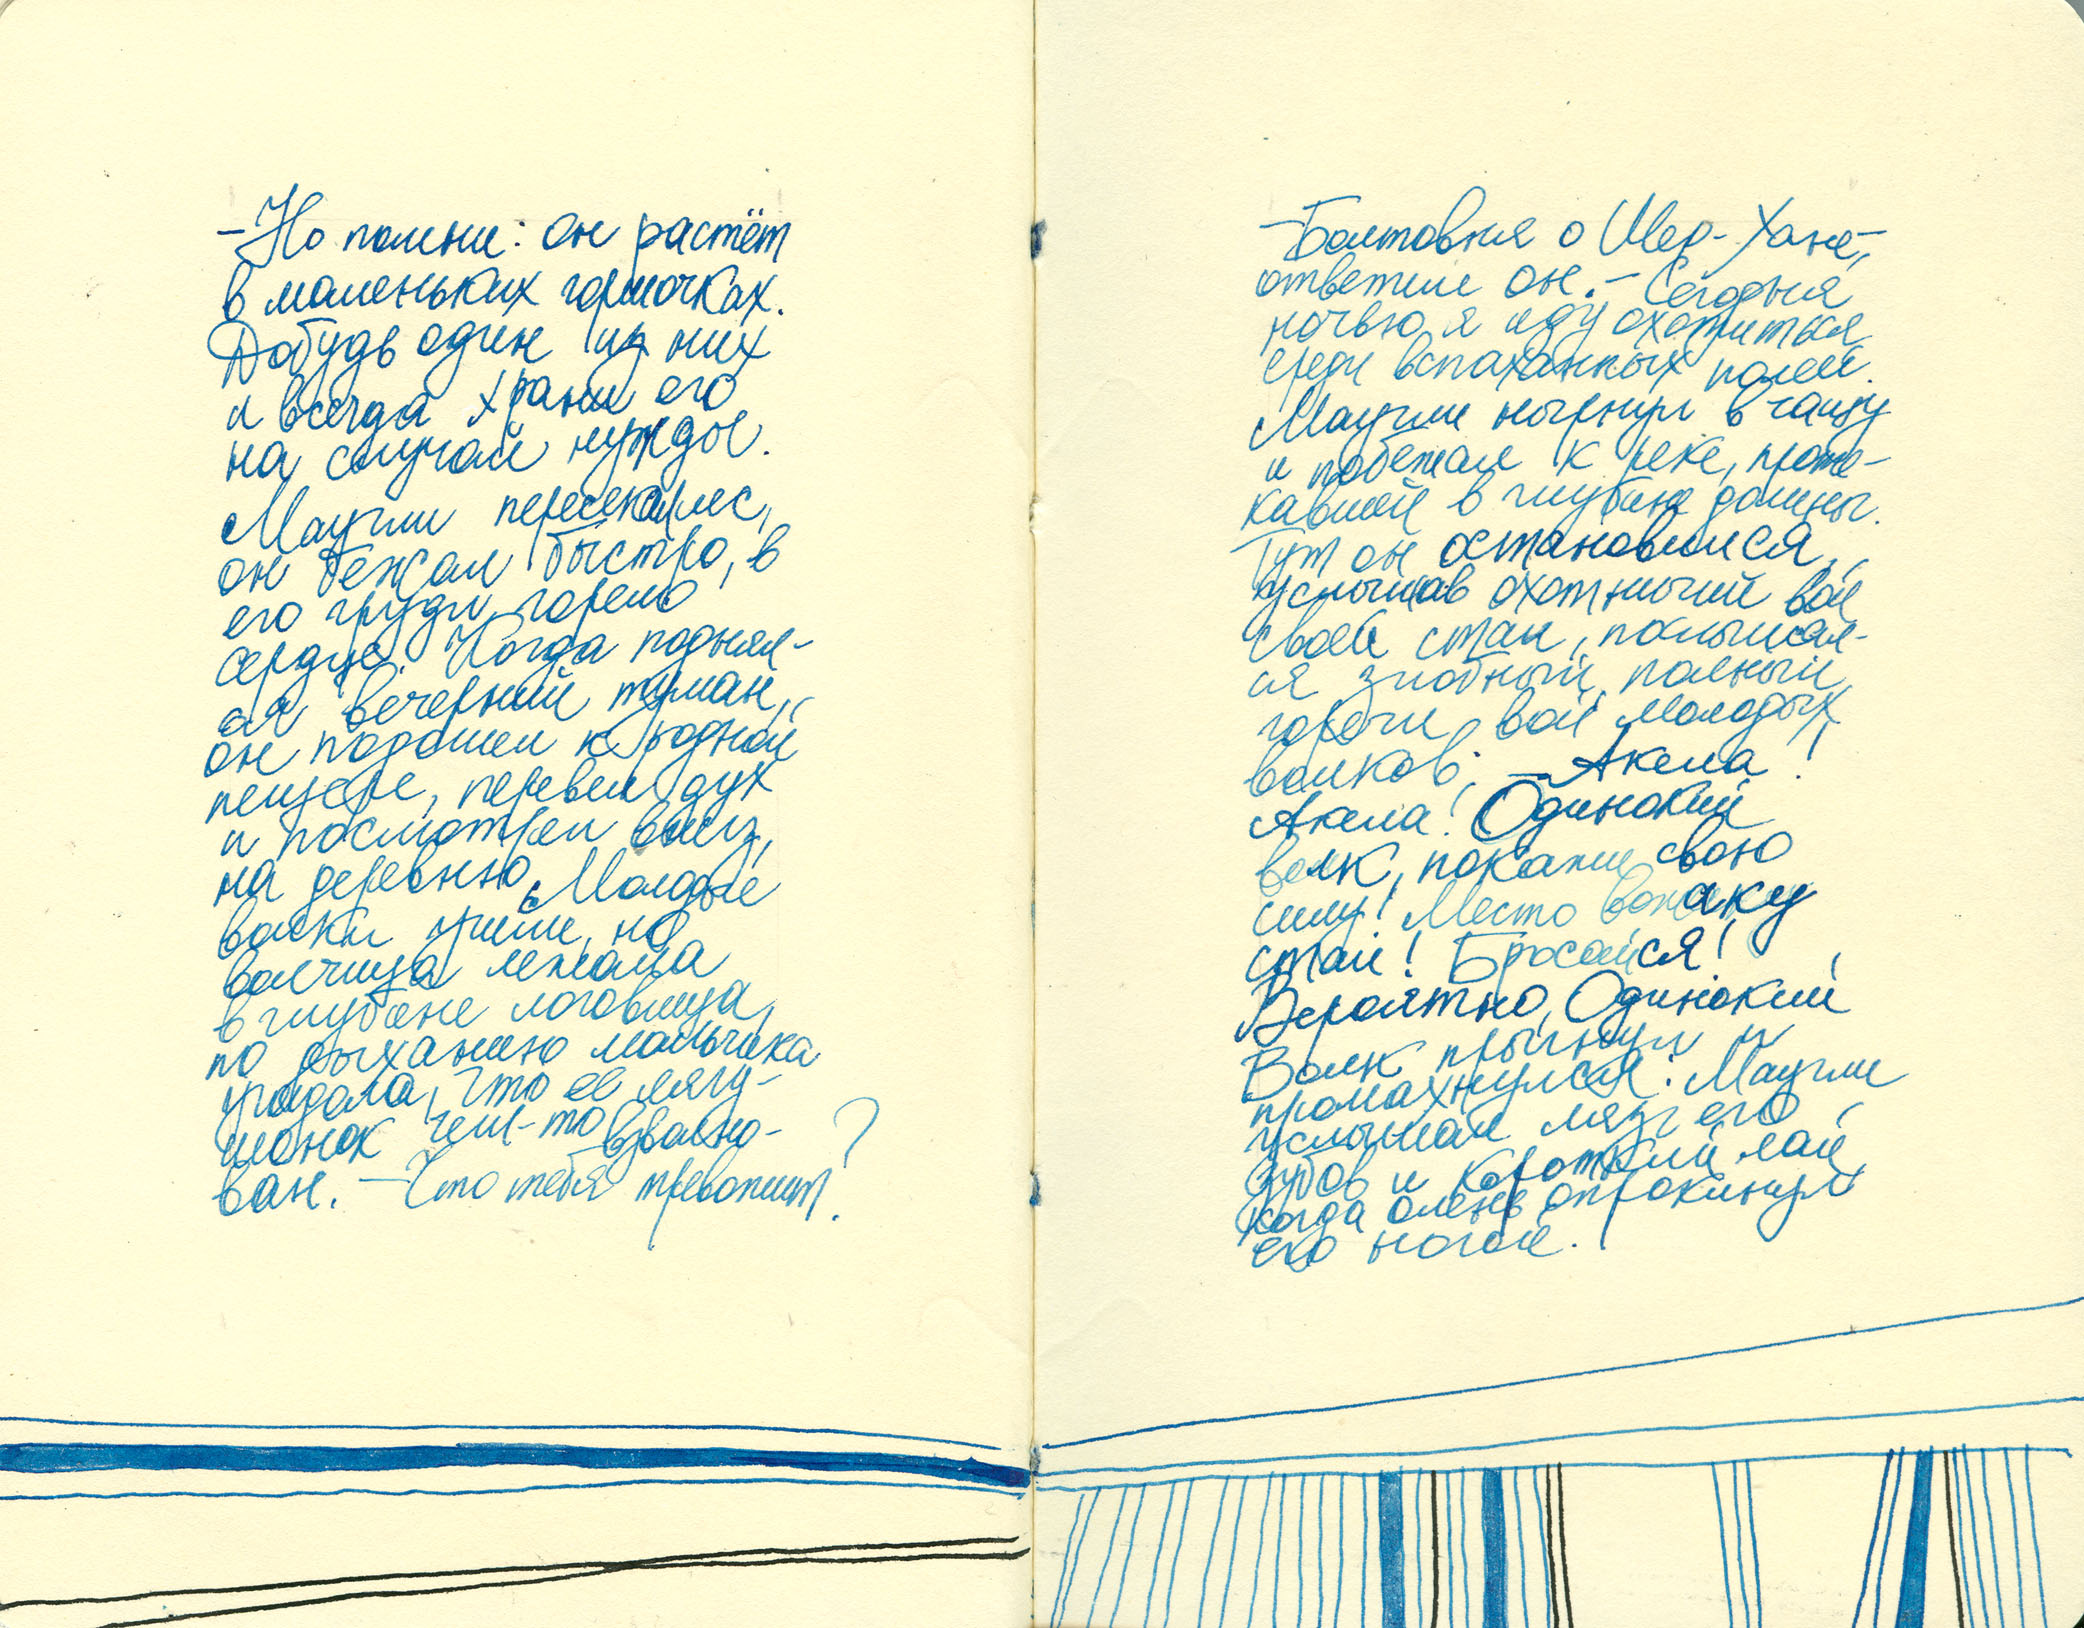 – Но помни: он растёт
в маленьких горшочках.
Добудь один из них
и всегда храни его
на случай нужды.
Маугли пересекал лес,
он бежал быстро, в
его груди горело
сердце. Когда поднял-
ся вечерний туман,
он подошел к родной
пещере, перевел дух
и посмотрел вниз,
на деревню. Молодые
волки ушли, но
волчица лежала
в глубине логовища,
по дыханию мальчика
угадала, что ее лягу-
шонок чем-то взволно-
ван. – Что тебя тревожит?
– Болтовня о Шер-Хане, –
ответил он. – Сегодня
ночью я иду охотиться
среди вспаханных полей.
Маугли нырнул в чащу
и побежал к реке, проте-
кавшей в глубине долины.
Тут он остановился,
услышав охотничий вой
своей стаи, послышал-
ся злобный, полный
горечи вой молодых
волков: – Акела!
Акела! Одинокий
волк, покажи свою
силу! Место вожаку
стаи! Бросайся!
Вероятно, Одинокий
Волк прыгнул и
промахнулся: Маугли
услышал лязг его
зубов и короткий лай,
когда олень опрокинул
его ногой.